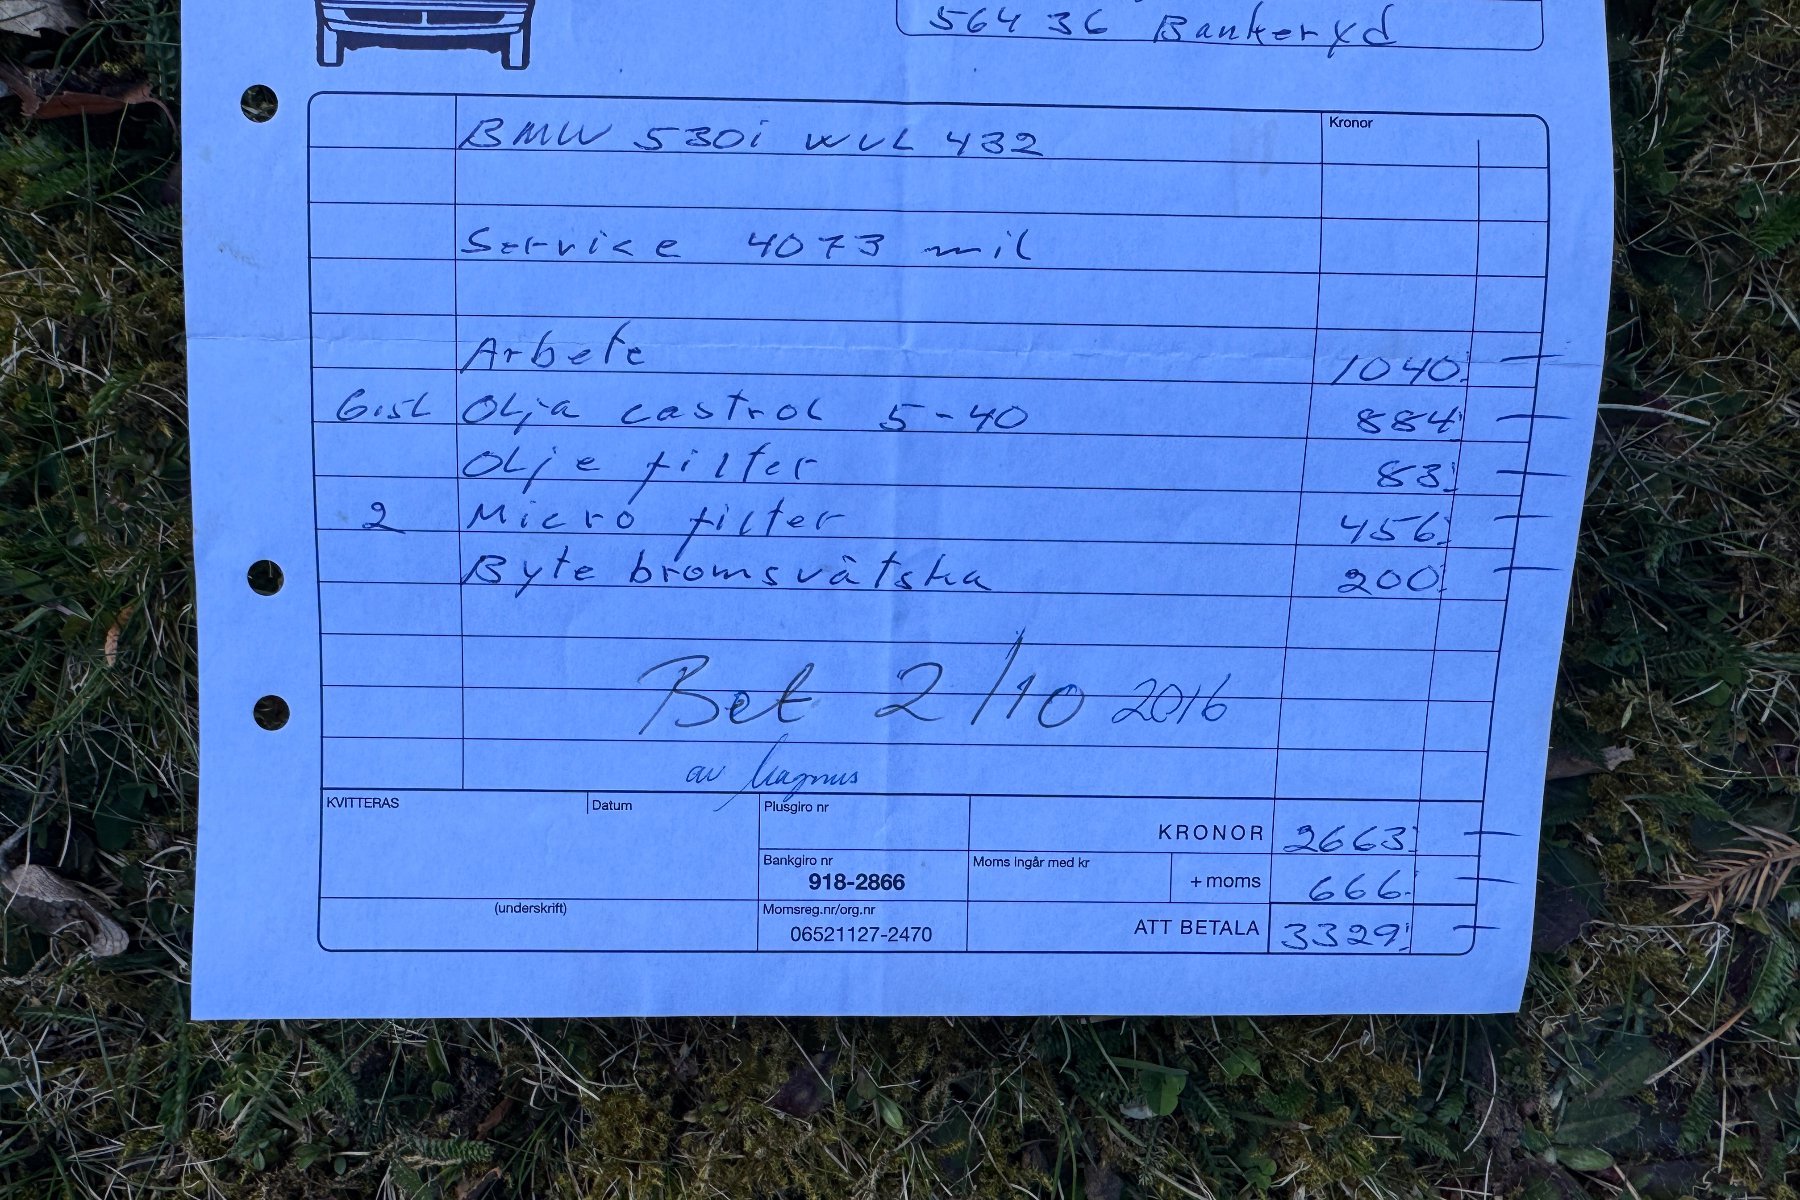 564 36 Bankeryd
Kronor
BMW 530i WUL 432
Service 4073 mil
Arbete 1040:-
6.5L Olja castrol 5-40 884:-
Olje filter 83:-
2 Micro filter 456:-
Byte bromsvätska 200:-
Bet 2/10 2016
av Magnus
KVITTERAS Datum Plusgiro nr
KRONOR 2663:-
Bankgiro nr Moms ingår med kr
918-2866 + moms 666:-
(underskrift) Momsreg.nr/org.nr
06521127-2470 ATT BETALA 3329:-